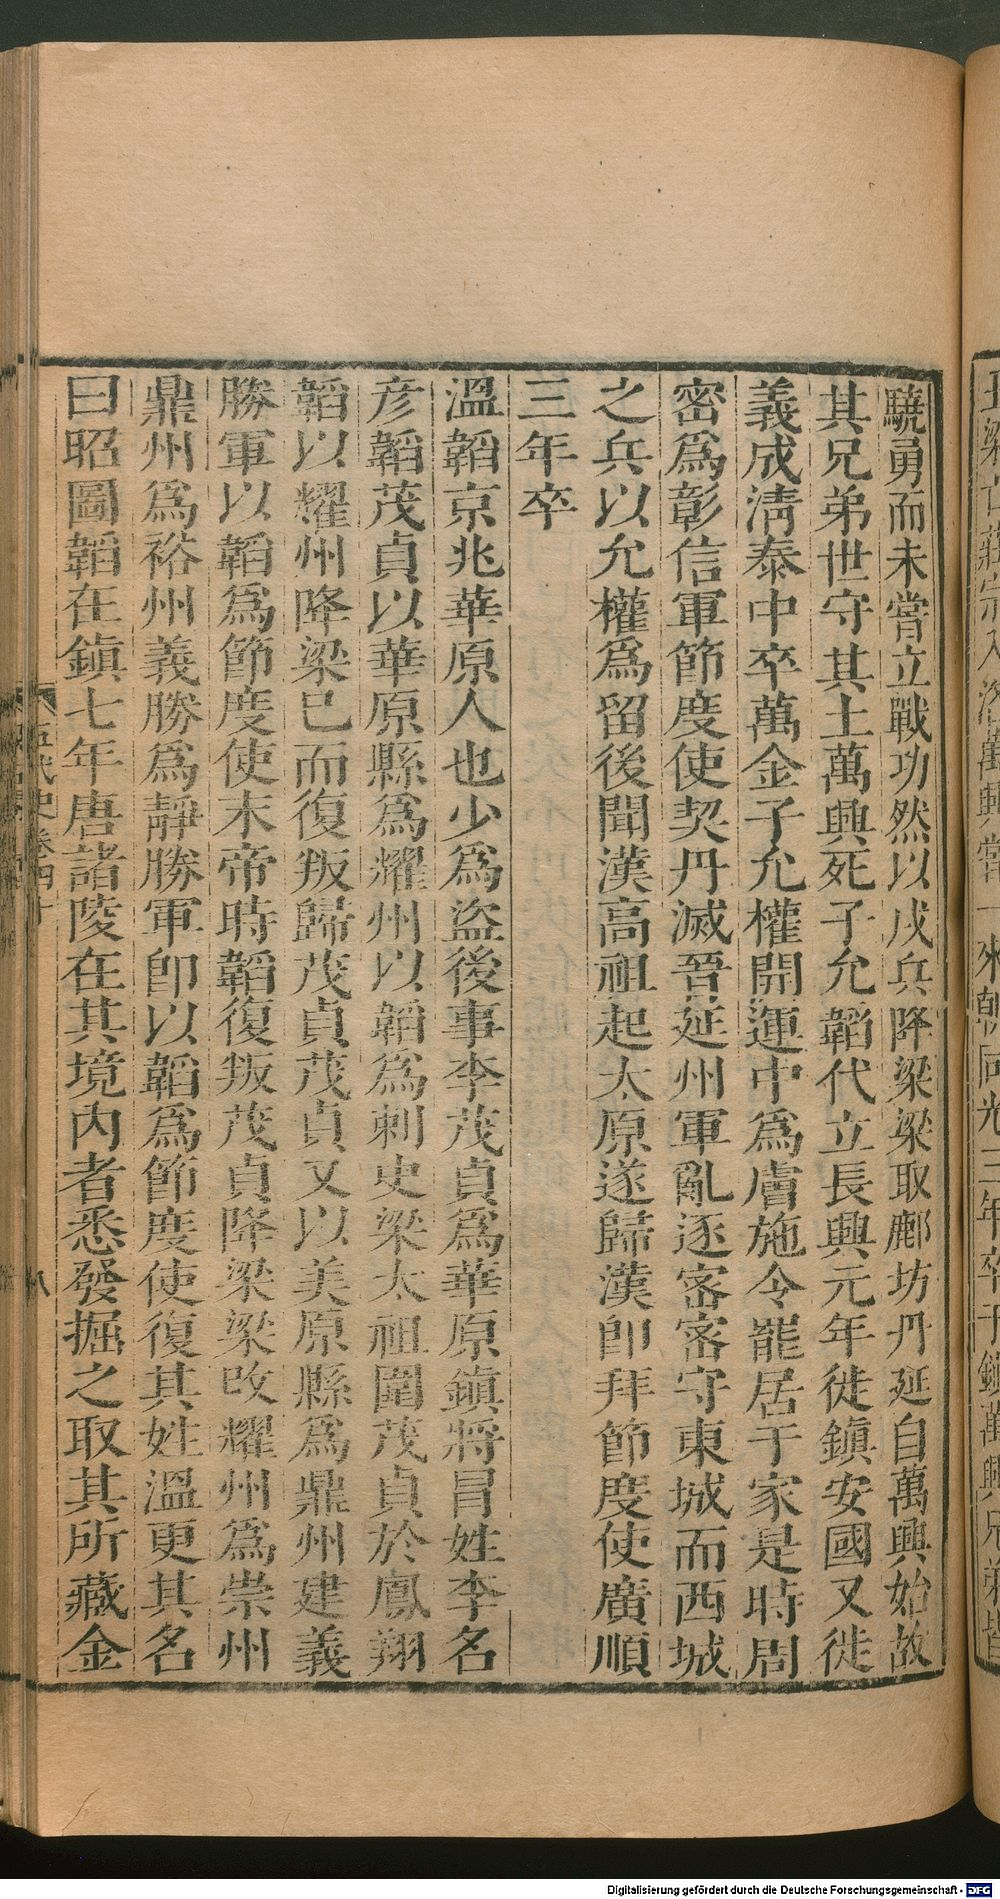 驍勇而未嘗立戰功然以戍兵降梁梁取鄜坊丹延自萬興始故
其兄弟世守其土萬興死子允韜代立長興元年徙鎮安國又徙
義成淸泰中卒萬金子允權開運中爲膚施令罷居于家是時周
密爲彰信軍節度使契丹滅晉延州軍亂逐密密守東城而西城
之兵以允權爲留後聞漢高祖起太原遂歸漢卽拜節度使廣順
三年卒
溫韜京兆華原人也少爲盜後事李茂貞爲華原鎮將冒姓李名
彦韜茂貞以華原縣爲耀州以韜爲刺史梁太祖圍茂貞於鳳翔
韜以耀州降梁已而復叛歸茂貞茂貞又以美原縣爲鼎州建義
勝軍以韜爲節度使末帝時韜復叛茂貞降梁梁改耀州爲崇州
鼎州爲裕州義勝爲靜勝軍卽以韜爲節度使復其姓溫更其名
曰昭圖韜在鎮七年唐諸陵在其境內者悉發掘之取其所藏金
五代史卷四十
八
Digitalisierung gefördert durch die Deutsche Forschungsgemeinschaft - DFG